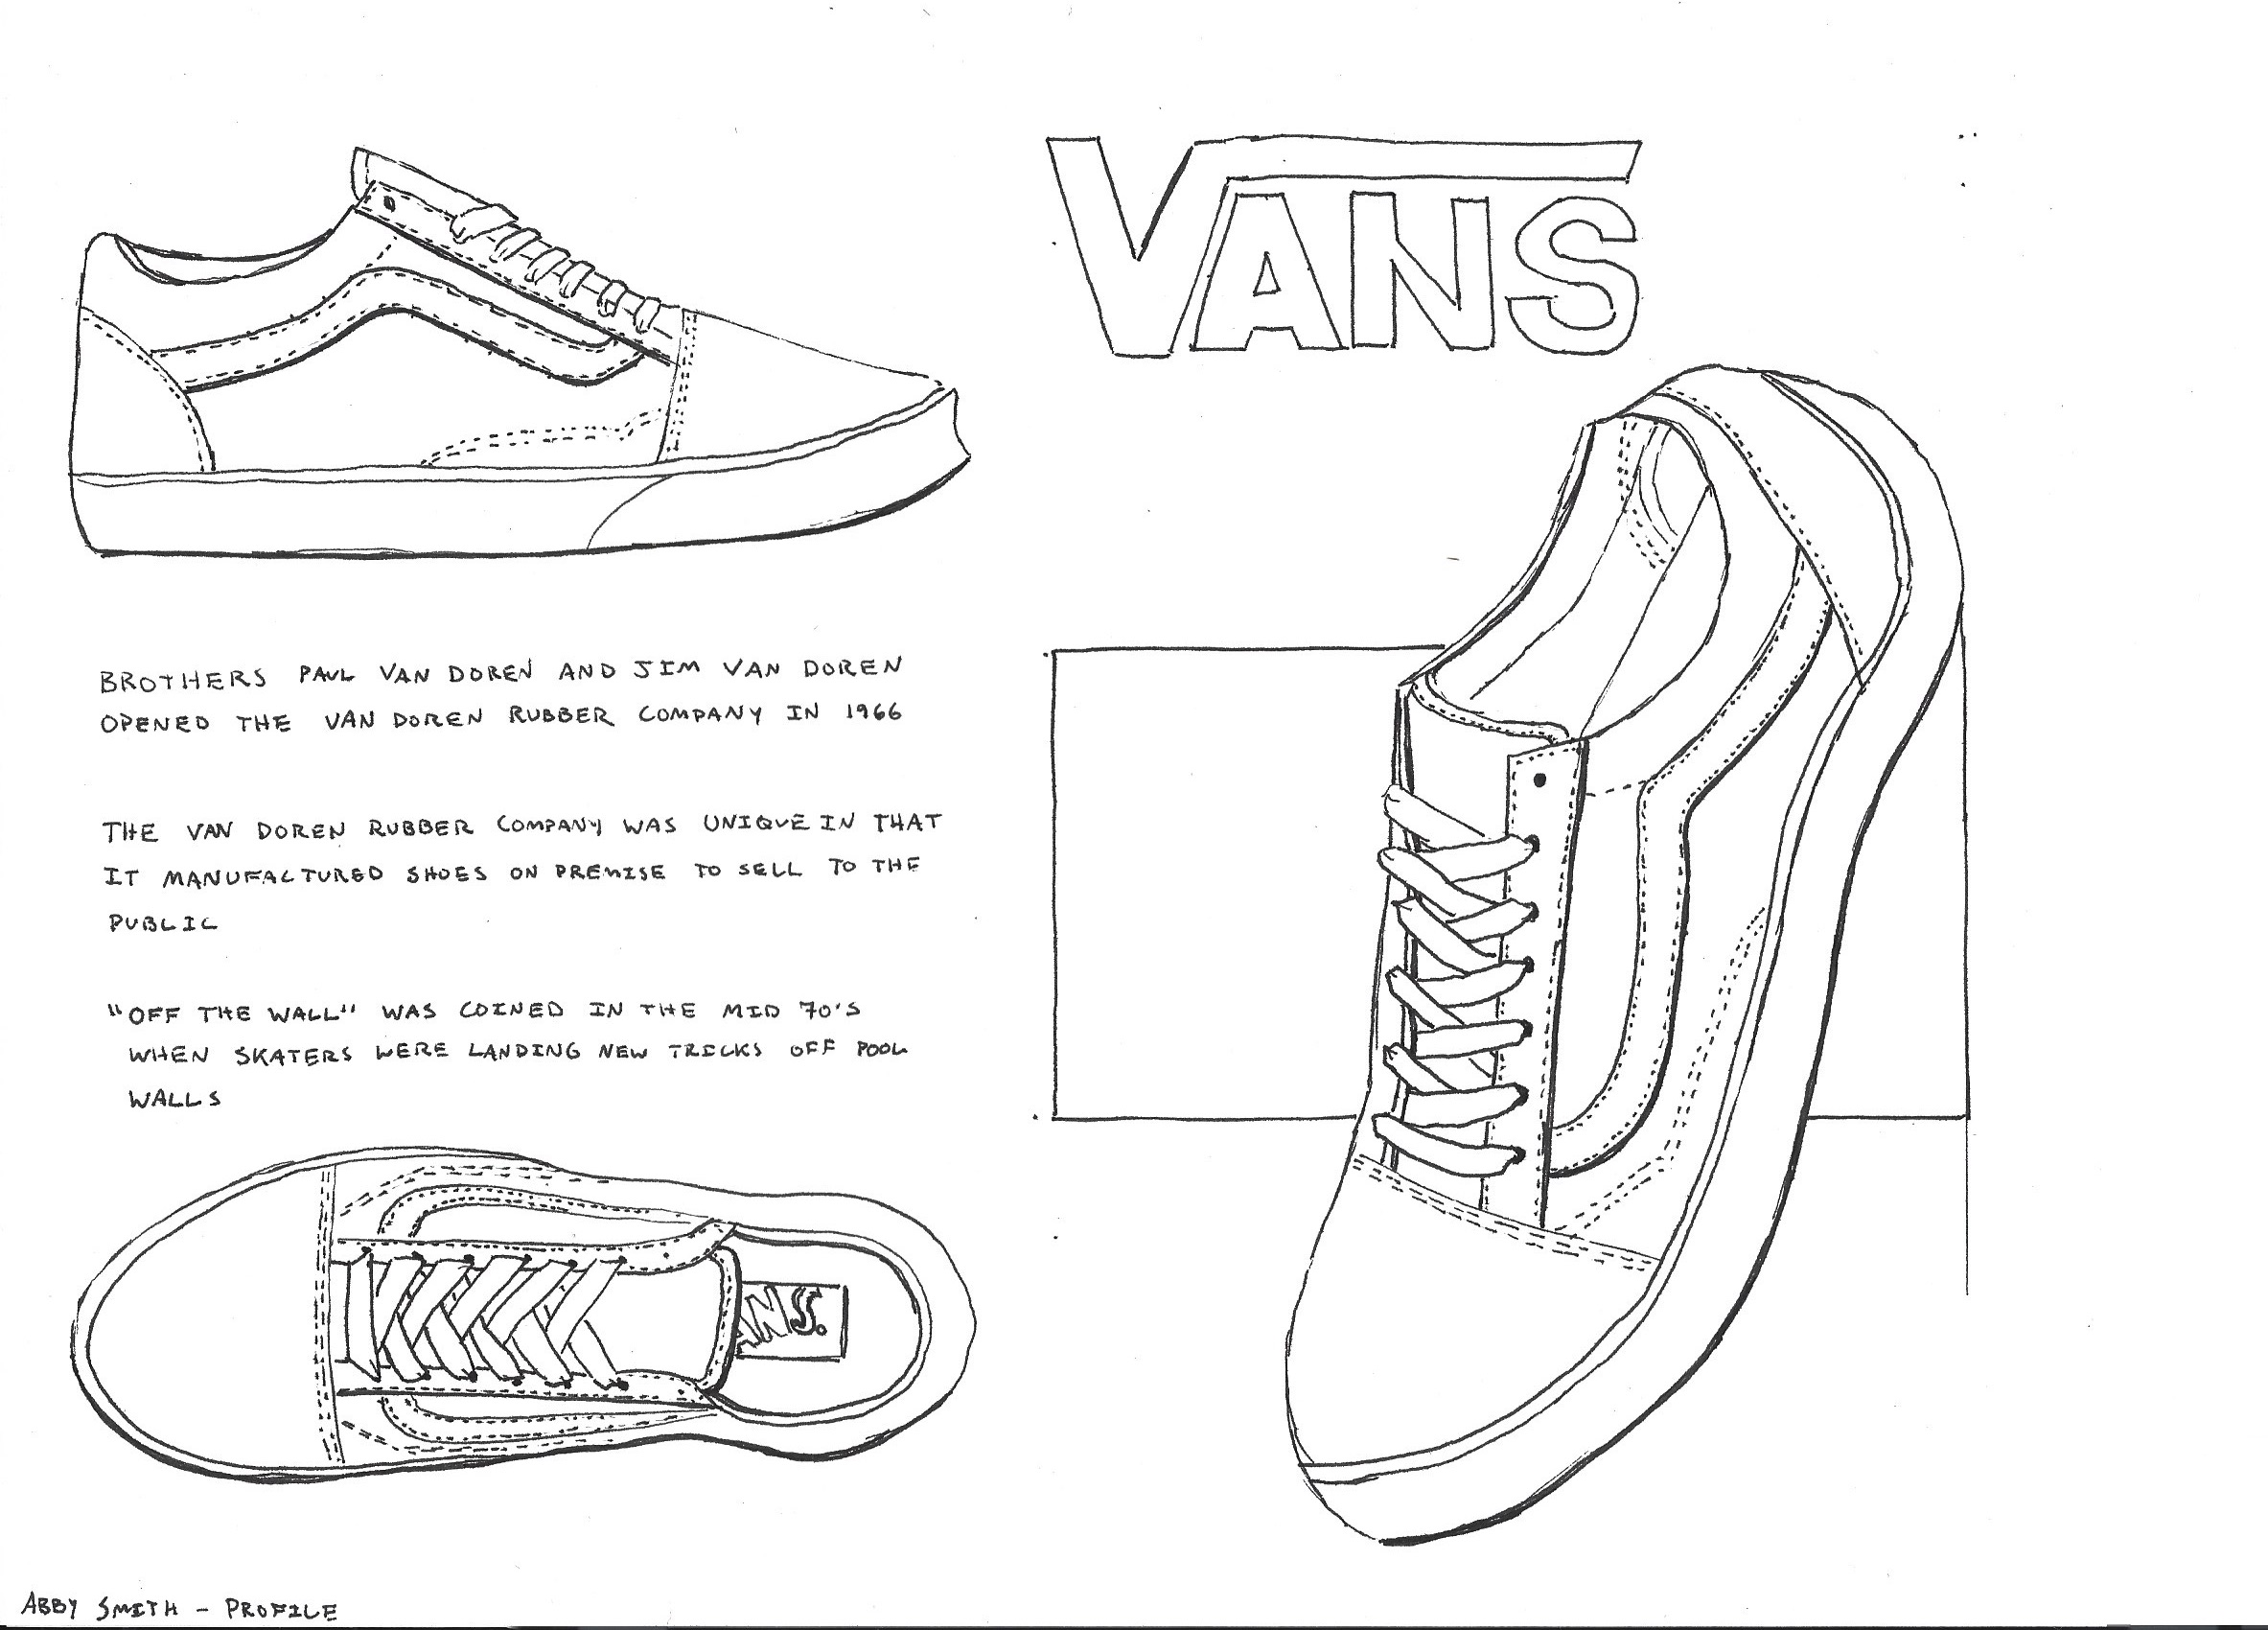 VANS
BROTHERS PAUL VAN DOREN AND JIM VAN DOREN
OPENED THE VAN DOREN RUBBER COMPANY IN 1966
THE VAN DOREN RUBBER COMPANY WAS UNIQUE IN THAT
IT MANUFACTURED SHOES ON PREMISE TO SELL TO THE
PUBLIC
"OFF THE WALL" WAS COINED IN THE MID 70'S
WHEN SKATERS WERE LANDING NEW TRICKS OFF POOL
WALLS
ANS.
ABBY SMITH - PROFILE